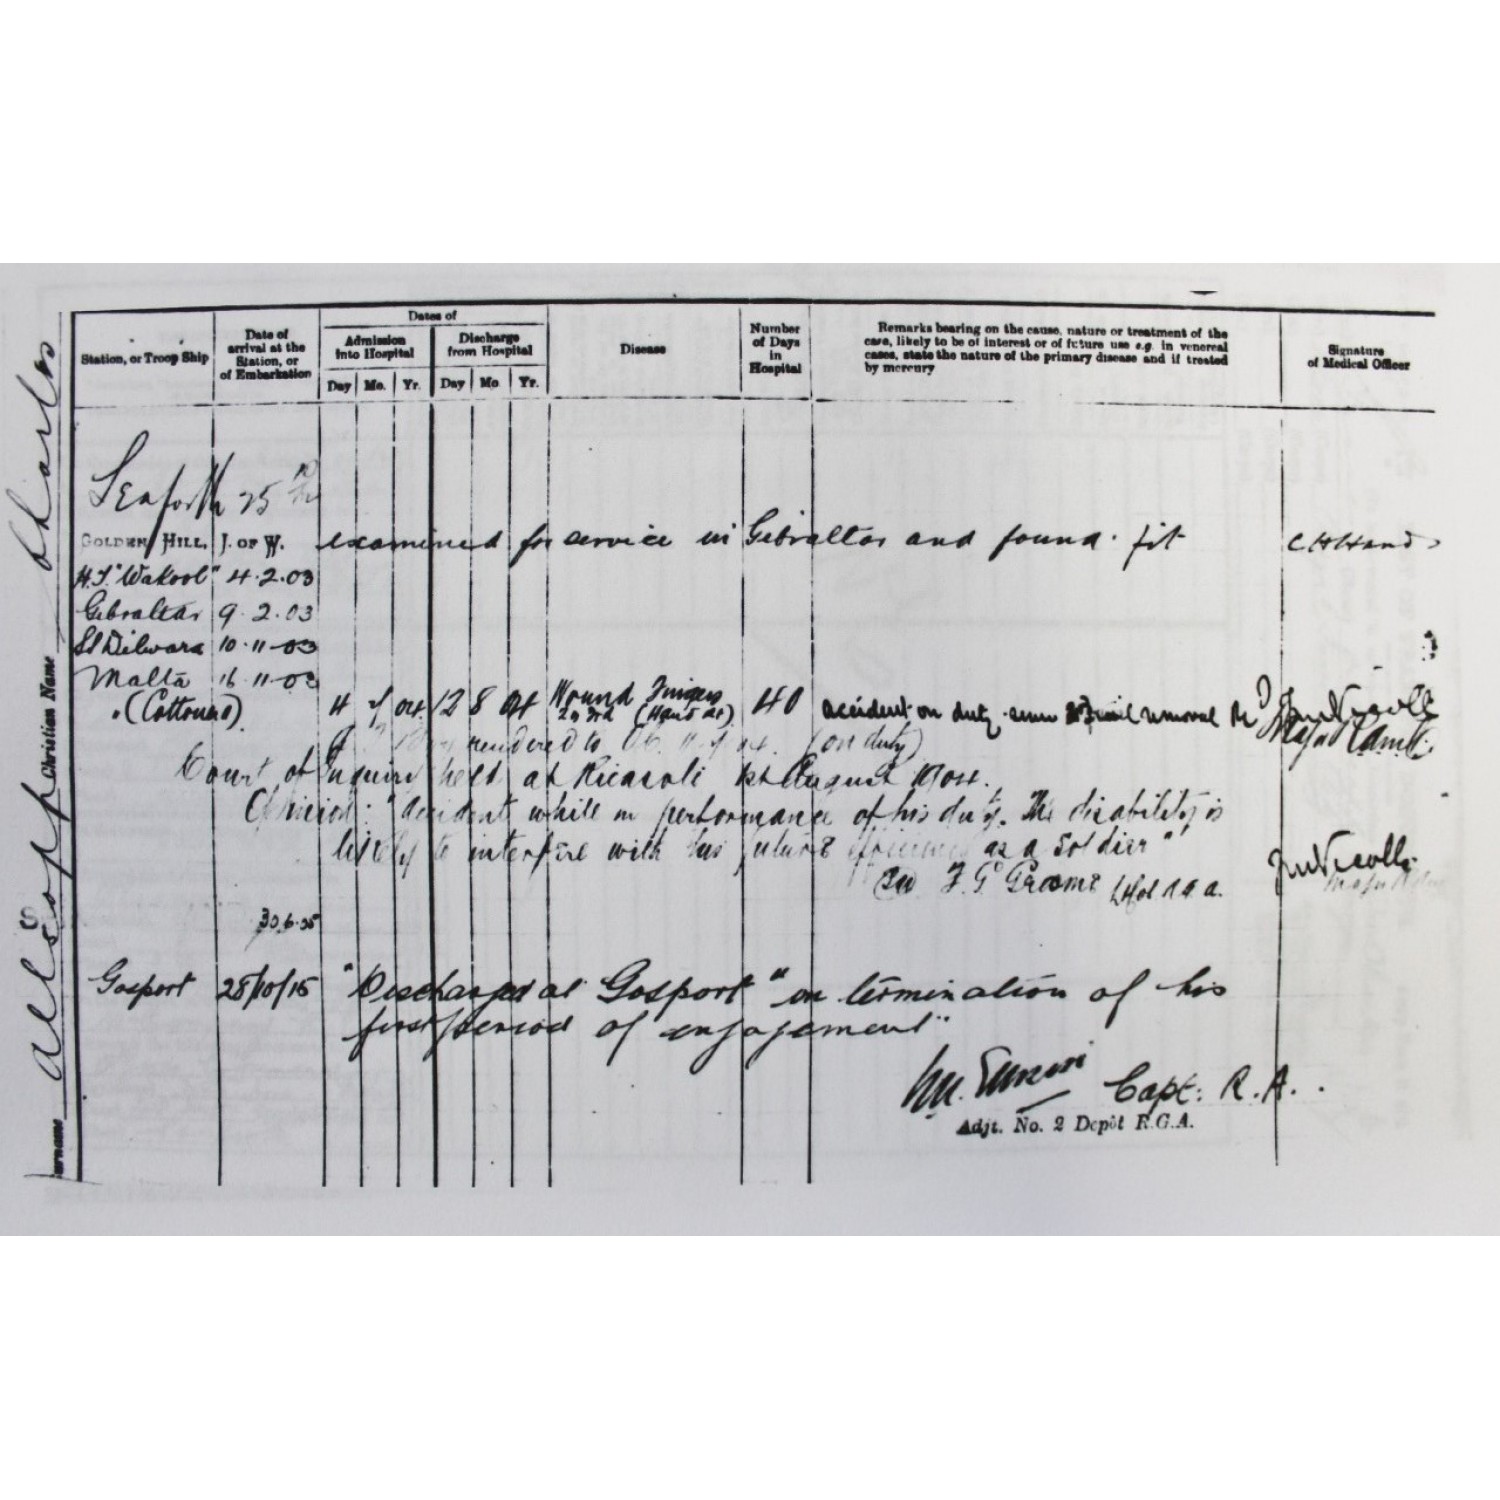 Surname Allsopp Christian Name Charles
Station, or Troop Ship
Date of arrival at the Station, or of Embarkation
Dates of
Admission into Hospital
Discharge from Hospital
Day Mo. Yr. Day Mo Yr.
Disease
Number of Days in Hospital
Remarks bearing on the cause, nature or treatment of the
case, likely to be of interest or of future use e.g. in venereal
cases, state the nature of the primary disease and if treated
by mercury
Signature of Medical Officer
Seaforth 25
GOLDEN HILL, I. OF W. examined for service in Gibraltar and found fit
H.T. "Wakool" 4.2.03
Gibraltar 9.2.03
SS Dilwara 10.11.03
Malta 16.11.03
(Cottonera) 4 7 04 12 8 04 Wound Fingers 40 accident on duty removal
rendered to (on duty)
Court of Inquiry held at Ricasoli 1st August 1904.
Opinion: "Accident while in performance of his duty. The disability is
likely to interfere with his future efficiency as a Soldier"
F. G. Groome
30.6.05
Gosport 28/10/15 "Discharged at Gosport" on termination of his
first period of engagement"
Capt: R.A.
Adjt. No. 2 Depôt R.G.A.